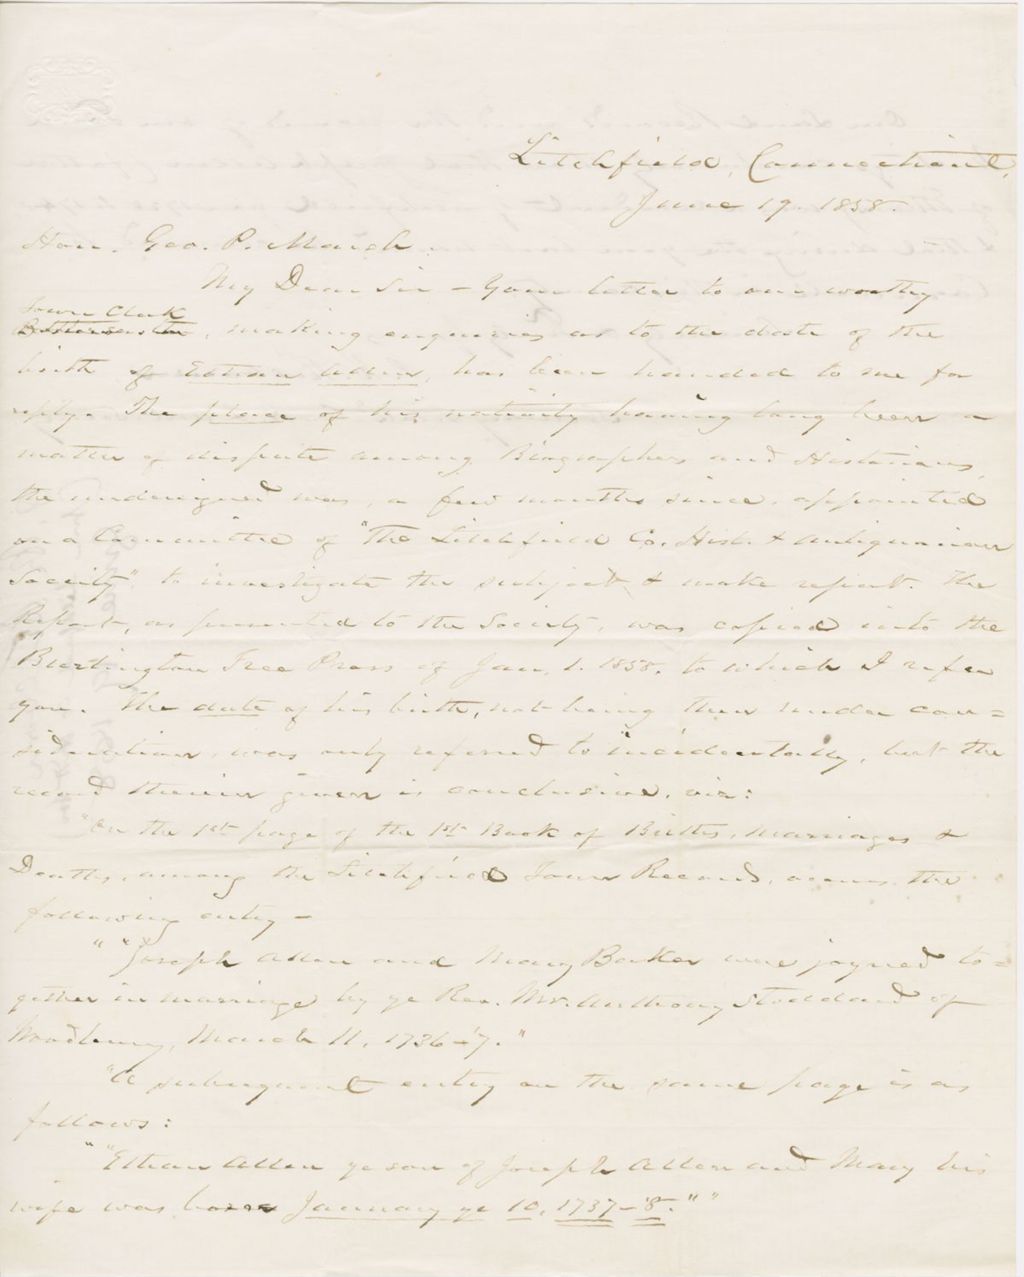 Litchfield, Connecticut,
June 19. 1858.
Hon. Geo. P. Marsh.
My Dear Sir – Your letter to our worthy
Town Clerk
Postmaster, making enquiries as to the date of the
birth of Ethan Allen, has been handed to me for
reply. The place of his nativity having long been a
matter of dispute among Biographers and Historians,
the undersigned was, a few months since, appointed
on a Committee of "The Litchfield Co. Hist. & Antiquarian
Society", to investigate the subject & make report. The
Report, as presented to the Society, was copied into the
Burlington Free Press of Jan. 1. 1858. to which I refer
you. The date of his birth, not being then under con=
sideration, was only referred to incidentally, but the
record therein given is conclusive, viz:
"On the 1st page of the 1st Book of Births, Marriages &
Deaths, among the Litchfield Town Records, occurs the
following entry –
" "Joseph Allen and Mary Baker were joyned to=
gether in marriage by ye Rev. Mr. Anthony Stoddard of
Woodbury, March 11, 1736-'7."
"A subsequent entry on the same page is as
follows:
" "Ethan Allen ye son of Joseph Allen and Mary his
wife was born January ye 10, 1737-'8." "